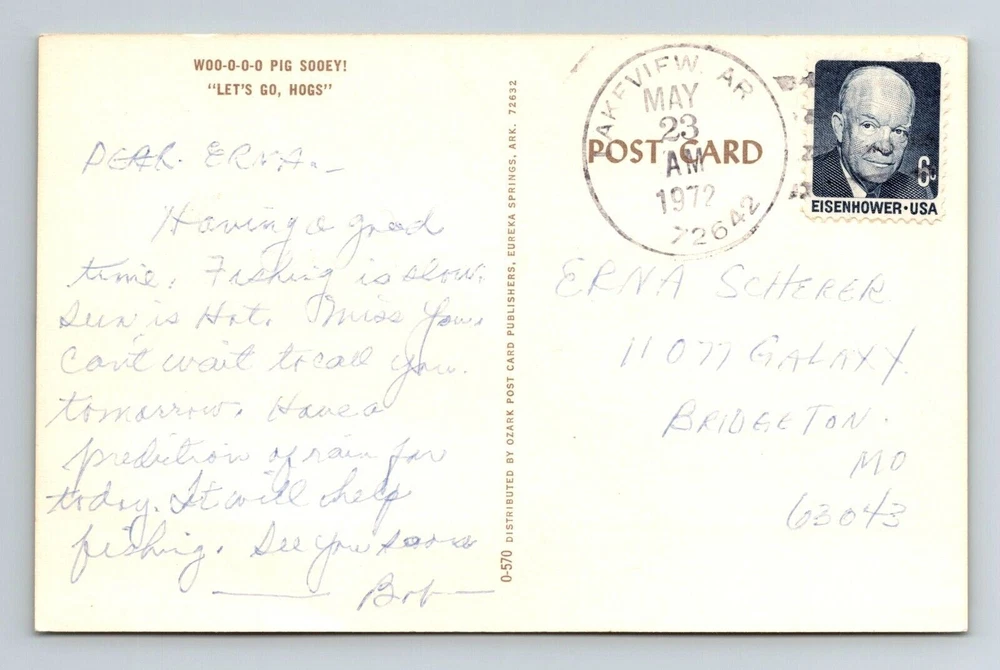 WOO-O-O-O PIG SOOEY!
"LET'S GO, HOGS"
DEAR ERNA.-
Having a good
time. Fishing is slow.
Sun is Hot. Miss You.
Can't wait to call you.
tomorrow. Have a
predition of rain for
today. It will help
fishing. See You soon
Bob
O-570 DISTRIBUTED BY OZARK POST CARD PUBLISHERS, EUREKA SPRINGS, ARK. 72632
LAKEVIEW, AR
MAY
23
AM
1972
72642
POST CARD
6c
EISENHOWER·USA
ERNA SCHERER
11077 GALAXY
BRIDGETON.
MO
63043